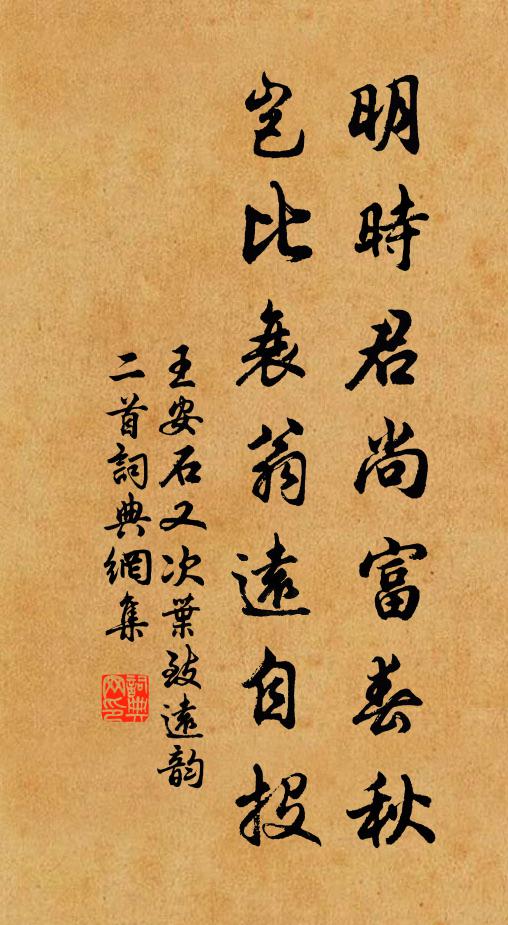 明時君尚富春秋
豈比衰翁遠自投
王安石又次葉致遠韻
二首詞典網集
詞典網印